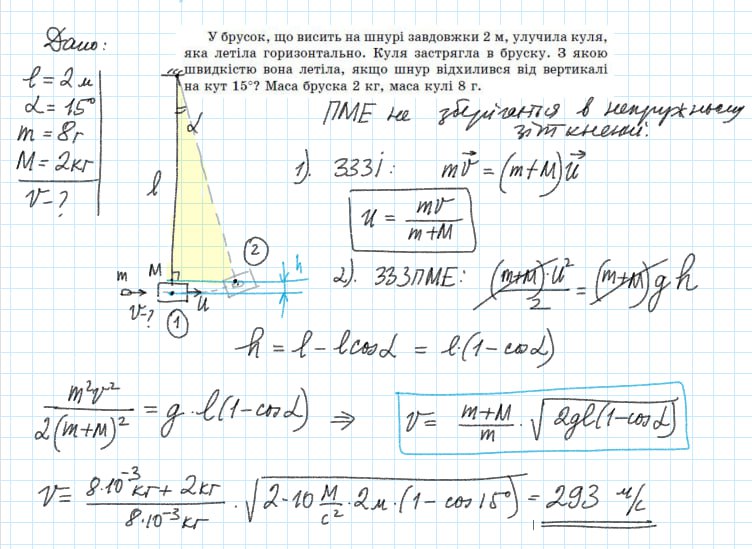 Дано:
l = 2 м
α = 15°
m = 8 г
M = 2 кг
v - ?
У брусок, що висить на шнурі завдовжки 2 м, улучила куля,
яка летіла горизонтально. Куля застрягла в бруску. З якою
швидкістю вона летіла, якщо шнур відхилився від вертикалі
на кут 15°? Маса бруска 2 кг, маса кулі 8 г.
ПМЕ не зберігається в непружньому
зіткненні.
α
l
M
m
v - ?
u
1
2
h
1). ЗЗЗі: mv⃗ = (m+M)u⃗
u = mv / (m+M)
2). ЗЗЗПМЕ: (m+M)·u² / 2 = (m+M) g h
h = l - l cos α = l·(1 - cos α)
m²v² / 2(m+M)² = g · l (1 - cos α) ⇒ v = (m+M) / m · √(2gl(1 - cos α))
v = (8·10⁻³ кг + 2 кг) / (8·10⁻³ кг) · √(2·10 м/с² · 2 м · (1 - cos 15°)) = 293 м/с